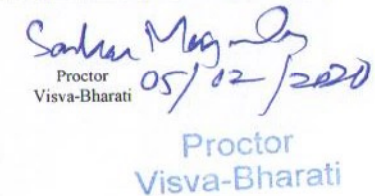 Proctor
Visva-Bharati 05/02/2020
Proctor
Visva-Bharati